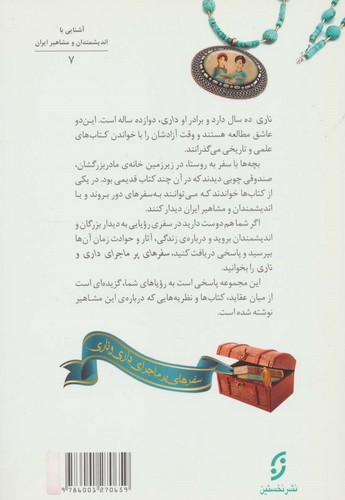 آشنایی با
اندیشمندان و مشاهیر ایران
۷
ناری ده سال دارد و برادر او داری، دوازده ساله است. این‌دو
عاشق مطالعه هستند و وقت آزادشان را با خواندن کتاب‌های
علمی و تاریخی می‌گذرانند.
بچه‌ها با سفر به روستا، در زیرزمین خانه‌ی مادربزرگشان،
صندوقی چوبی دیدند که در آن چند کتاب قدیمی بود. در یکی
از کتاب‌ها خواندند که می‌توانند به‌سفرهای دور بروند و با
اندیشمندان و مشاهیر ایران دیدار کنند.
اگر شما هم دوست دارید در سفری رؤیایی به دیدار بزرگان و
اندیشمندان بروید و درباره‌ی زندگی، آثار و حوادث زمان آن‌ها
بپرسید و پاسخ دریافت کنید، سفرهای پر ماجرای داری و
ناری را بخوانید.
این مجموعه پاسخی است به رؤیاهای شما، گزیده‌ای است
از میان عقاید، کتاب‌ها و نظریه‌هایی که درباره‌ی این مشاهیر
نوشته شده است.
سفرهای پر ماجرای داری و ناری
نشر نخستین
9 786001 270659